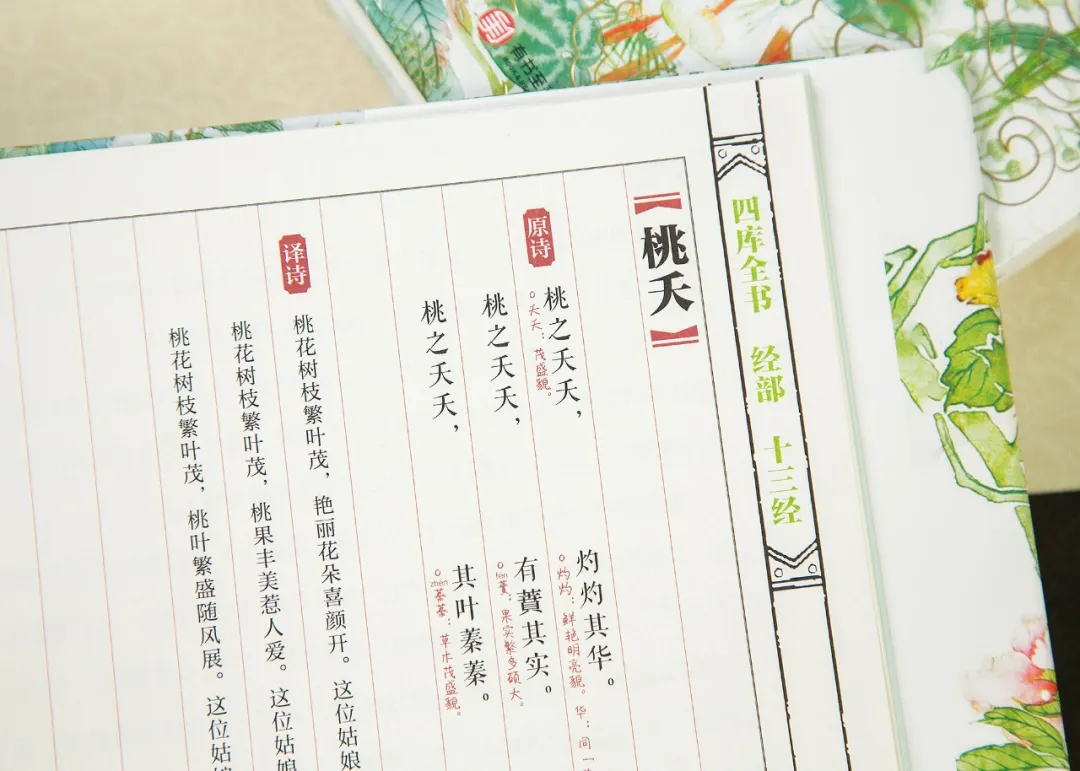 有书至
四库全书 经部 十三经
【桃夭】
原诗
桃之夭夭， 灼灼其华。
夭夭：茂盛貌。 灼灼：鲜艳明亮貌。华：同
桃之夭夭， 有蕡其实。
fén
蕡：果实繁多硕大。
桃之夭夭， 其叶蓁蓁。
zhēn
蓁蓁：草木茂盛貌。
译诗
桃花树枝繁叶茂，艳丽花朵喜颜开。这位姑娘
桃花树枝繁叶茂，桃果丰美惹人爱。这位姑娘
桃花树枝繁叶茂，桃叶繁盛随风展。这位姑娘